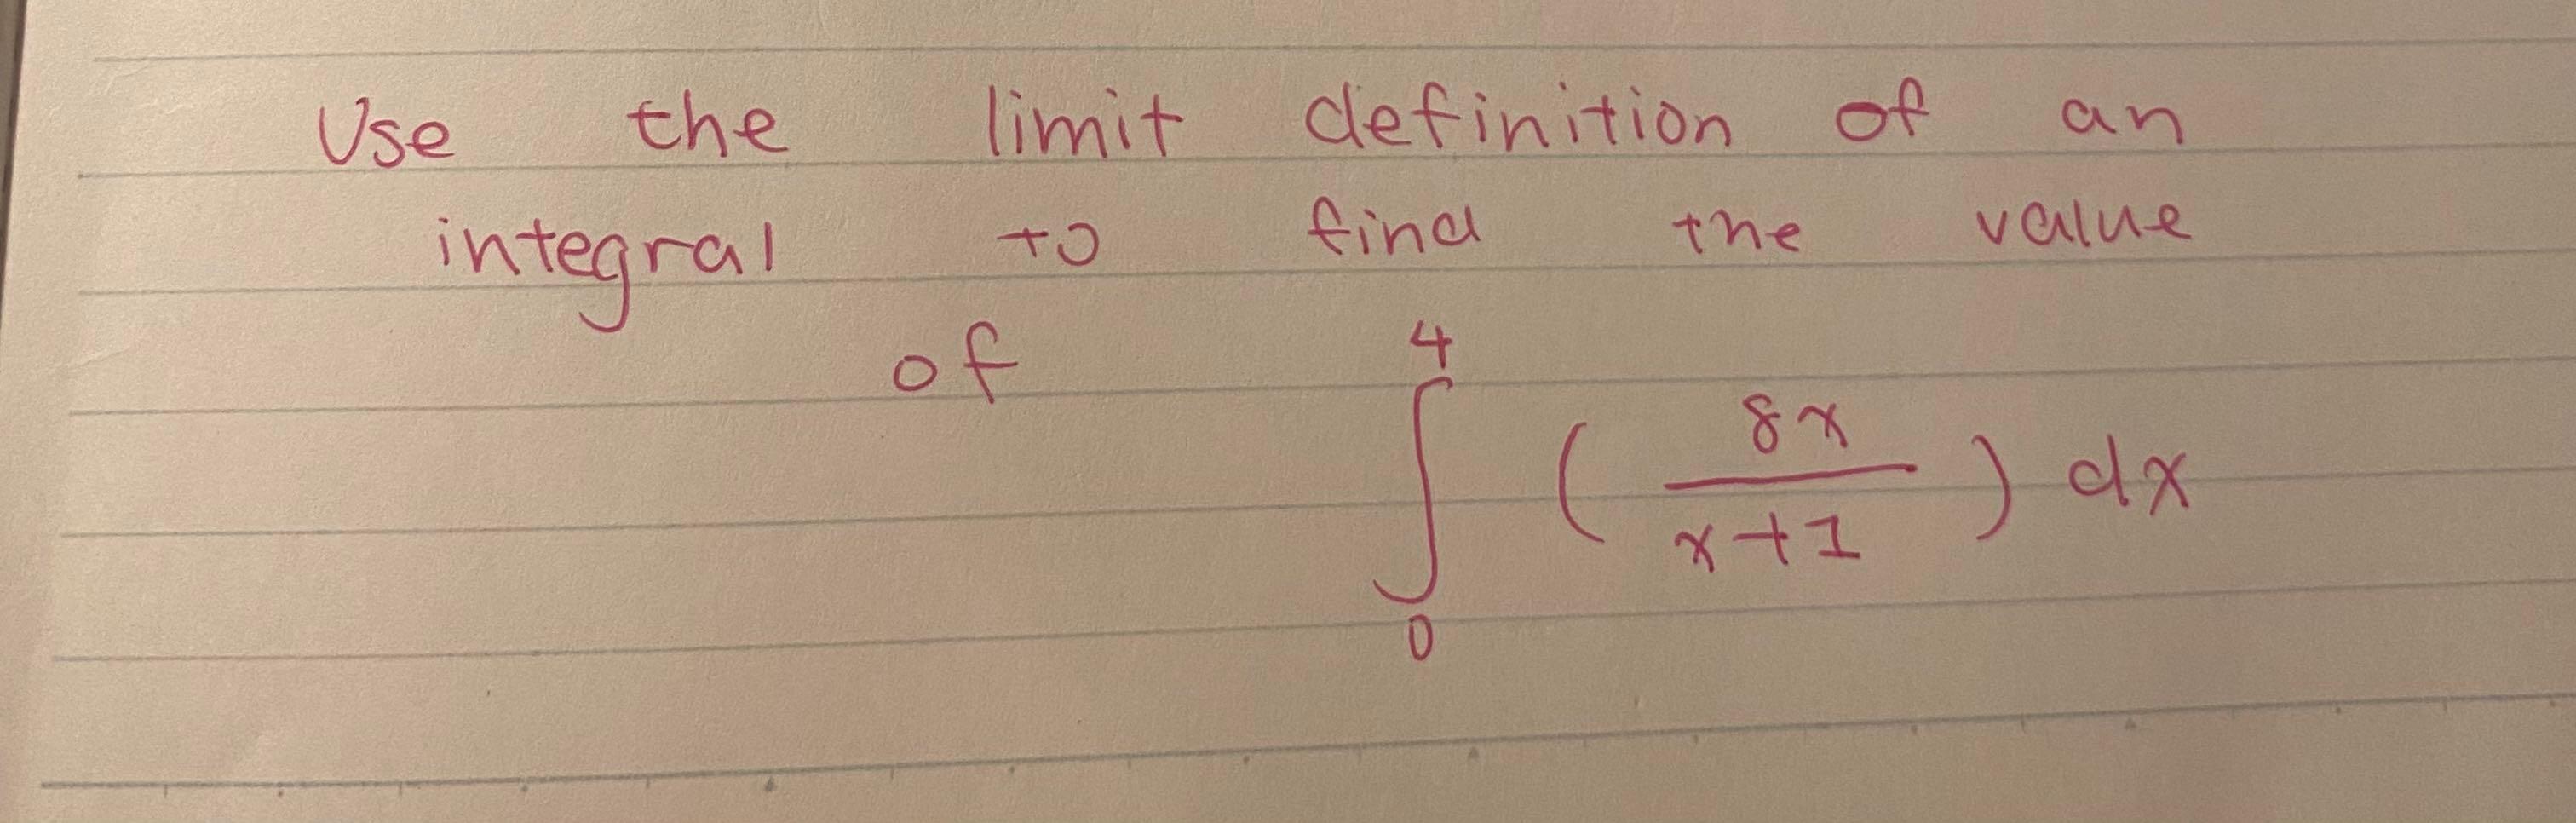 Use the limit definition of an
integral to find the value
of ∫₀⁴ (8x/(x+1)) dx